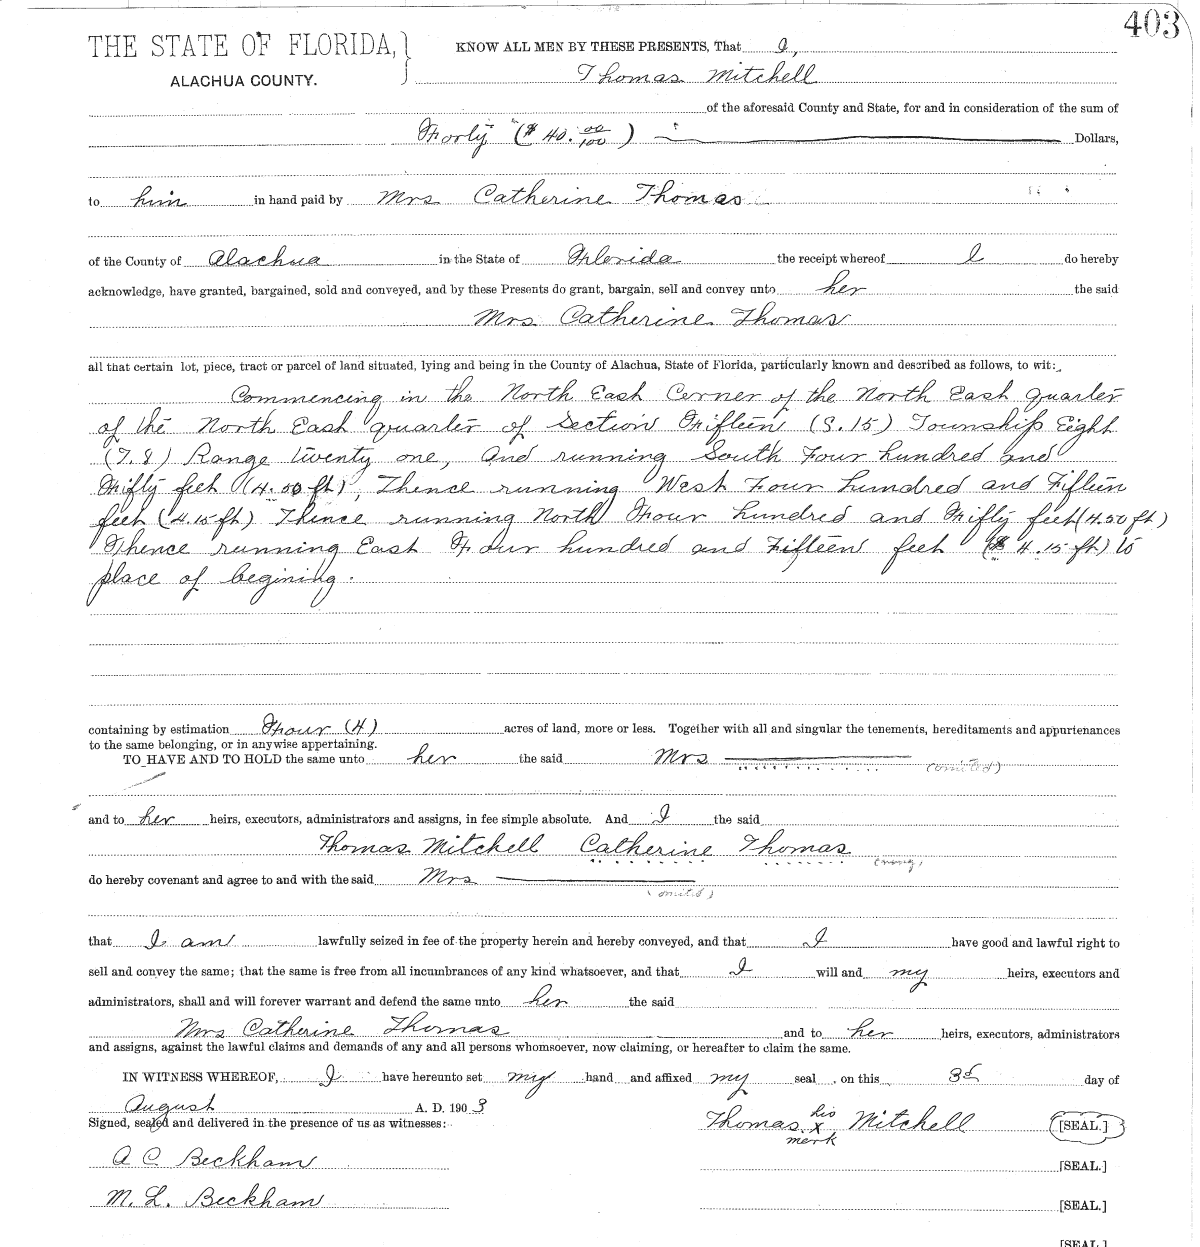 403
THE STATE OF FLORIDA,
ALACHUA COUNTY.
KNOW ALL MEN BY THESE PRESENTS, That I,
Thomas Mitchell
of the aforesaid County and State, for and in consideration of the sum of
Forty ($40.00/100) Dollars,
to him in hand paid by Mrs Catherine Thomas
of the County of Alachua in the State of Florida the receipt whereof I do hereby
acknowledge, have granted, bargained, sold and conveyed, and by these Presents do grant, bargain, sell and convey unto her the said
Mrs Catherine Thomas
all that certain lot, piece, tract or parcel of land situated, lying and being in the County of Alachua, State of Florida, particularly known and described as follows, to wit:
Commencing in the North East Corner of the North East quarter
of the North East quarter of Section Fifteen (S. 15) Township Eight
(T. 8) Range twenty one, And running South Four hundred and
Fifty feet (4.50 ft), Thence running West Four hundred and Fifteen
feet (4.15 ft) Thence running North Four hundred and Fifty feet (4.50 ft)
Thence running East Four hundred and Fifteen feet (4.15 ft) to
place of begining.
containing by estimation Four (4) acres of land, more or less. Together with all and singular the tenements, hereditaments and appurtenances
to the same belonging, or in anywise appertaining.
TO HAVE AND TO HOLD the same unto her the said Mrs (omited)
and to her heirs, executors, administrators and assigns, in fee simple absolute. And I the said
Thomas Mitchell Catherine Thomas (wrong)
do hereby covenant and agree to and with the said Mrs (omited)
that I am lawfully seized in fee of the property herein and hereby conveyed, and that I have good and lawful right to
sell and convey the same; that the same is free from all incumbrances of any kind whatsoever, and that I will and my heirs, executors and
administrators, shall and will forever warrant and defend the same unto her the said
Mrs Catherine Thomas and to her heirs, executors, administrators
and assigns, against the lawful claims and demands of any and all persons whomsoever, now claiming, or hereafter to claim the same.
IN WITNESS WHEREOF, I have hereunto set my hand and affixed my seal, on this 3d day of
August A. D. 1903
Signed, sealed and delivered in the presence of us as witnesses:
Thomas his x mark Mitchell [SEAL.]
A C Beckham [SEAL.]
M. L. Beckham [SEAL.]
[SEAL.]